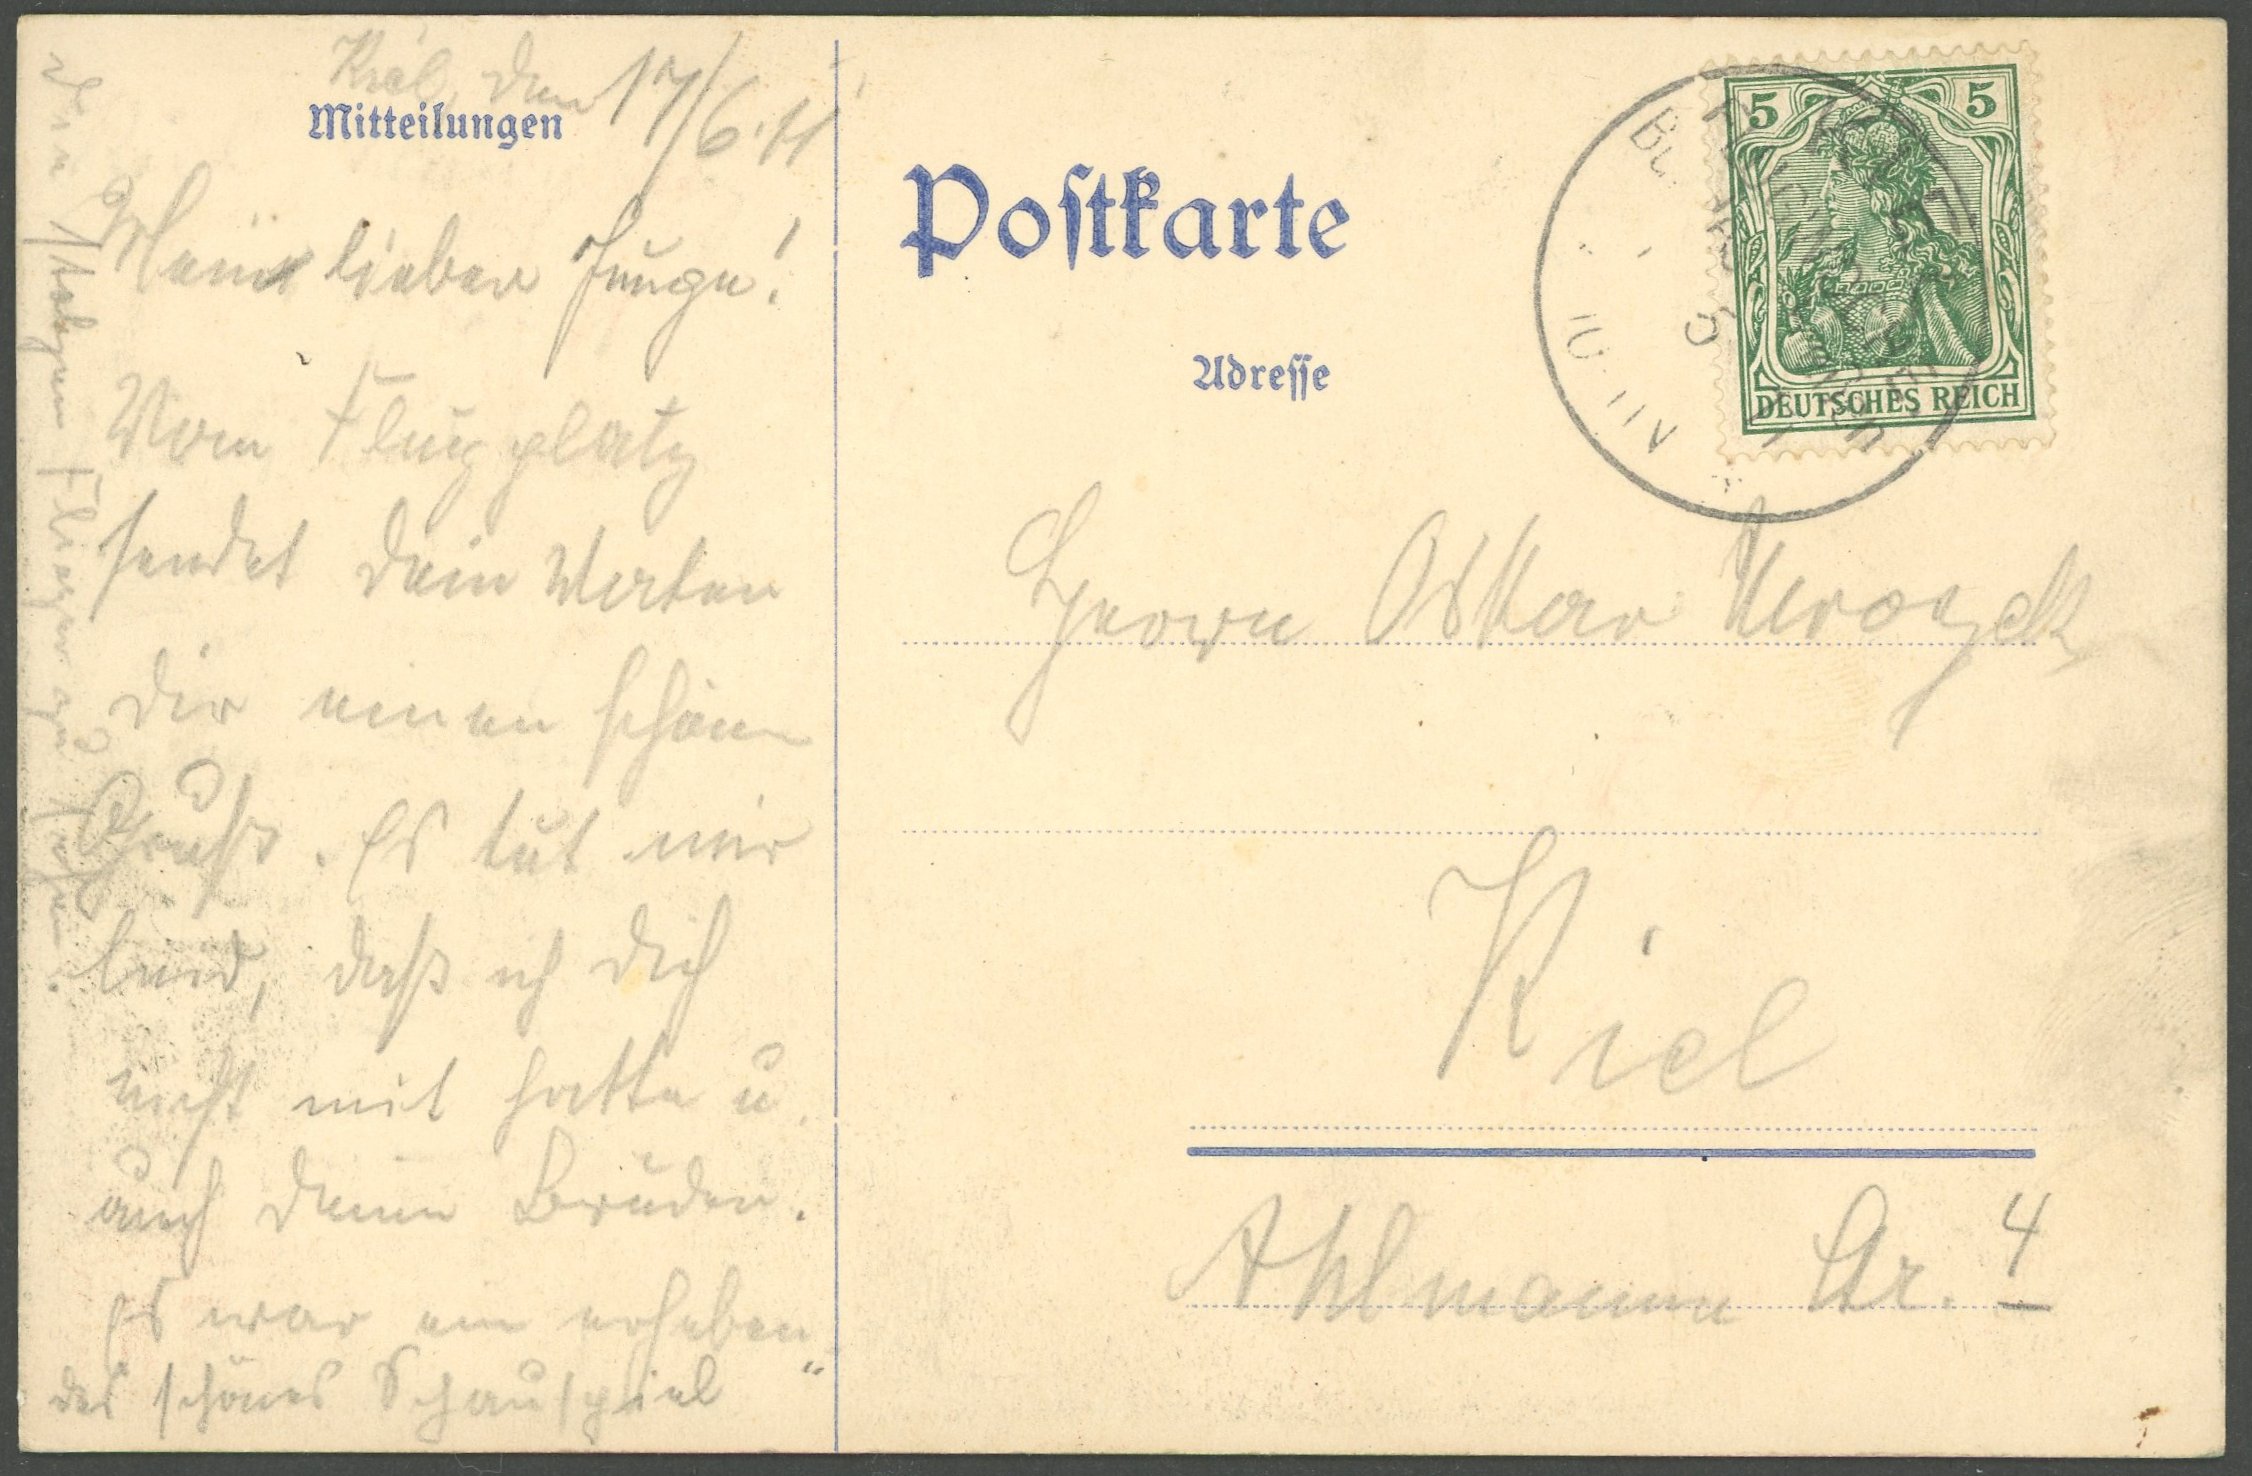 Kiel, den 17/6.11
Mitteilungen
Mein lieber Junge!
Vom Flugplatz
sendet Dein
Dir einen schönen
Gruß. Es tut mir
leid, daß ich Dich
nicht mit hatte u.
auch Deinen Bruder.
Es war ein erheben
des schönes Schauspiel
Flieger zu sehen.
Postkarte
Adresse
5 5
DEUTSCHES REICH
Herrn Oskar
Kiel
Ahlmann Str. 4